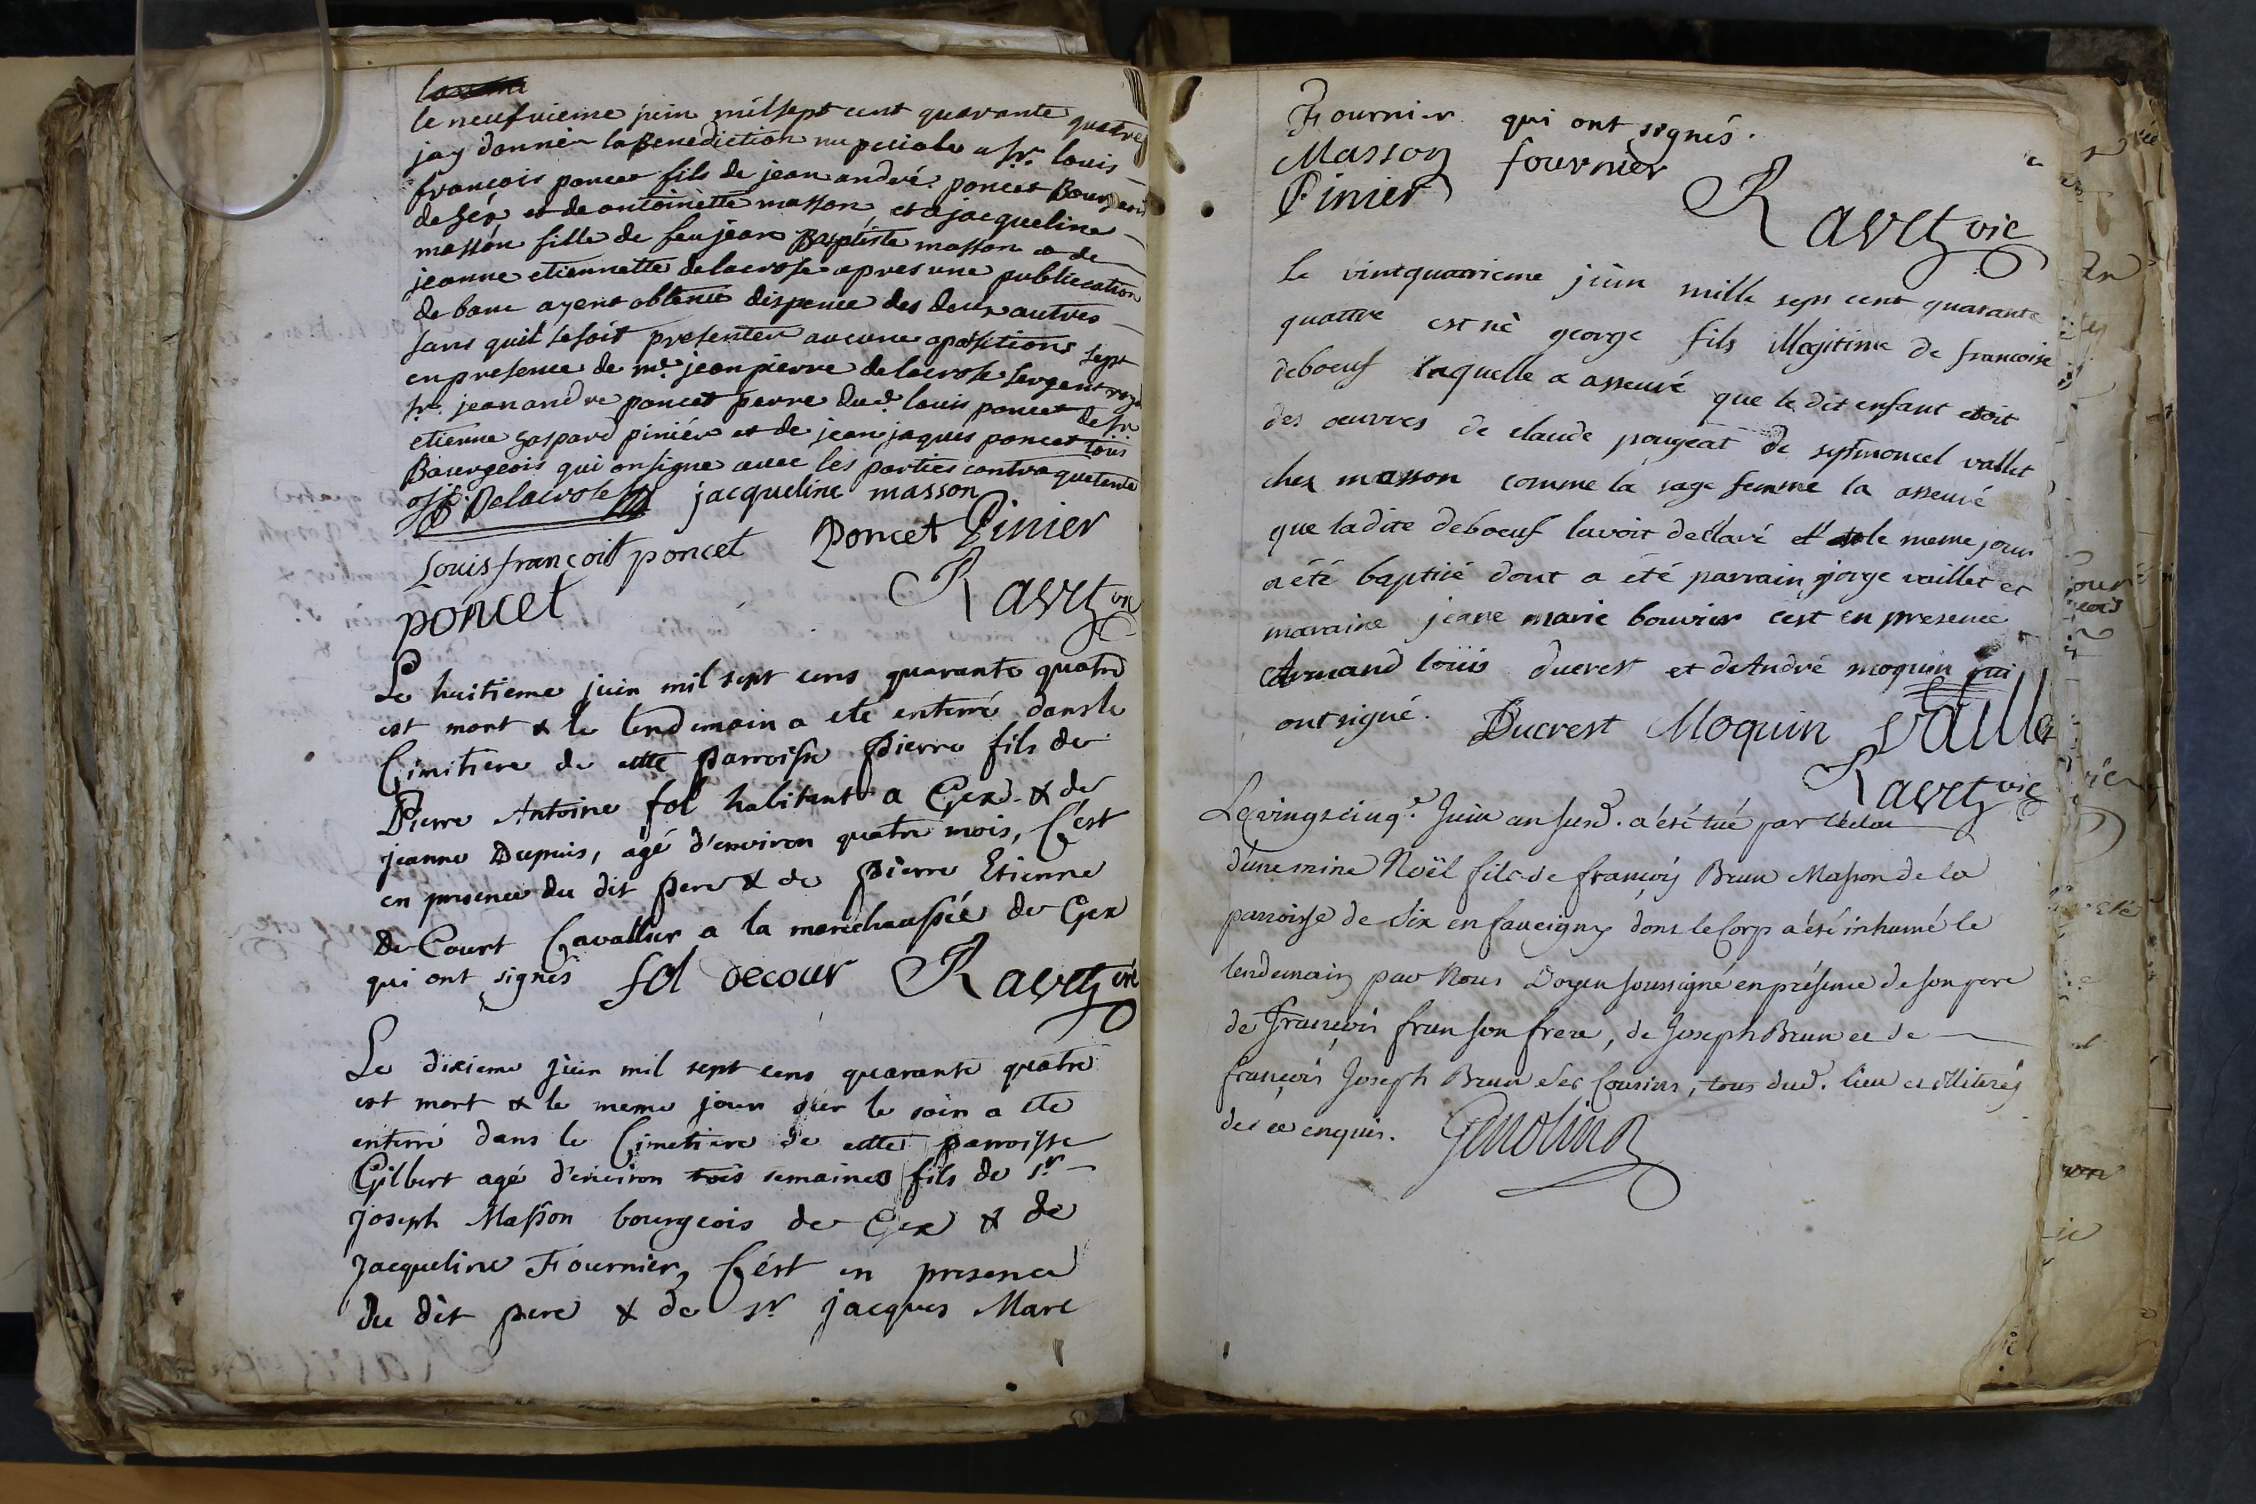 le neufvieme juin mil sept cent quarante quatre
jay donnér la Benediction nupciale a sr. louis
françois poncet fils de jean andré poncet Bourgeois
de Gex et de antoinette masson, et a jacqueline
masson fille de feu jean Baptiste masson et de
jeanne etiennette delacrose apres une publication
de banc ayent obtenüe dispence des deux autres
sans quil se soit presenter aucune opositions
en presence de me. jean pierre delacrose sergent royal
sr. jean andre poncet perre dud. louis poncet de sr.
etienne gaspard piniér et de jean jaques poncet tous
Bourgeois qui on signe avec les parties contraquetente
Delacrose jacqueline masson
Louis françois poncet Poncet Pinier
poncet Ravet vic
Le huitieme juin mil sept cens quarante quatre
est mort & le lendemain a eté enterré dans le
Cimitiere de cette parroisse Pierre fils de
Pierre Antoine fol habitant a Gex & de
jeanne Dupuis, agé d'environ quatre mois, C'est
en presence du dit pere & de pierre Etienne
De Court Cavallier a la maréchaussée de Gex
qui ont signés fol decour Ravet vic
Le dixieme juin mil sept cens quarante quatre
est mort & le meme jour sur le soir a eté
enterré dans le Cimetiere de cette parroisse
Gilbert agé d'environ trois semaines fils de sr
joseph Masson bourgeois de Gex & de
jacqueline Fournier, C'ést en presence
du dit pere & de sr jacques Marc
Fournier qui ont signés.
Masson fournier
Pinier Ravet vic
le vintquatrieme juin mille sept cent quarante
quattre est né george fils illegitime de francoise
deboeuf laquelle a asseuré que le dit enfant etoit
des oeuvres de claude pougeat de septmoncel vallet
chez masson comme la sage femme la asseuré
que ladite deboeuf lavoit déclaré et le meme jour
a été baptisé dont a été parrain gjorge vaillet et
maraine jeane marie bouvier c'est en presence
Armand loüis ducrest et de André moquin qui
ont signé. Ducrest Moquin Vaillet
Ravet vic
Le vingt cinqe. Juin an susd. a été tué par l'éclat
d'une mine Noël fils de françois Brun Masson de la
parroisse de Six en faucigny dont le Corp a été inhumé le
lendemain par Nous Doyen soussigné en présence de son pere
de François frun son frere, de Joseph Brun et de
françois Joseph Brun ses Cousins, tous dud. lieu et illiterés
de ce enquis. Genolin